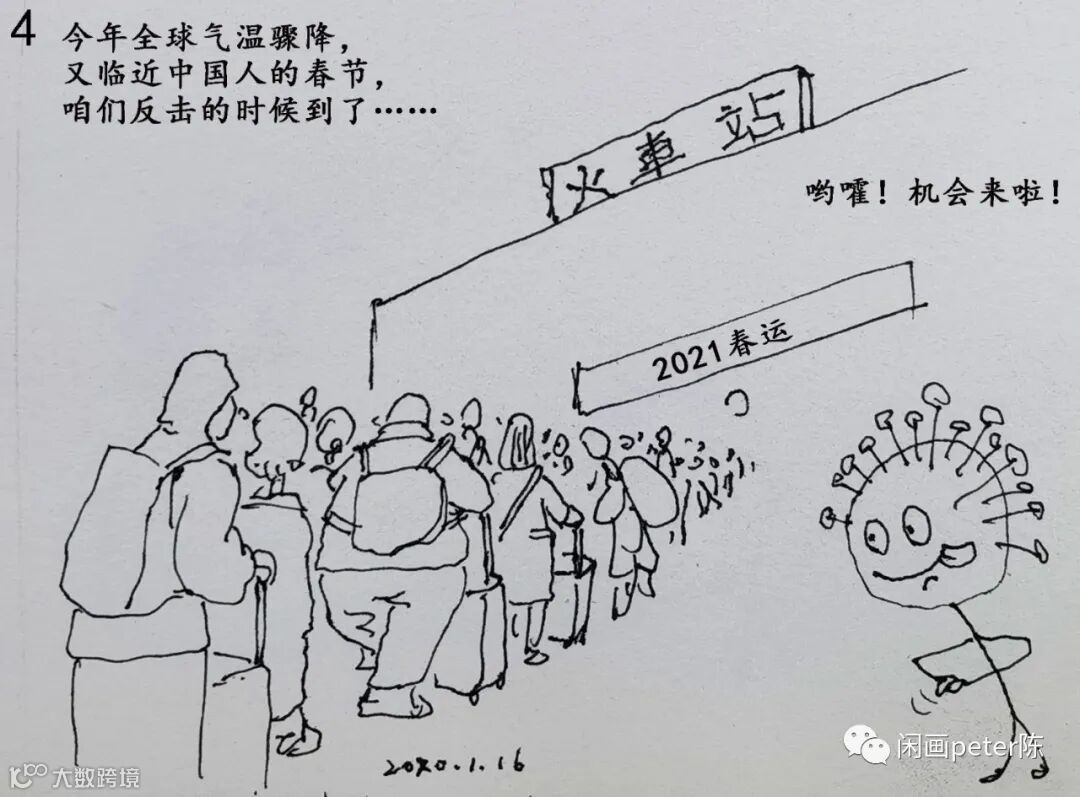 4
今年全球气温骤降，
又临近中国人的春节，
咱们反击的时候到了……
火車站
哟嚯！机会来啦！
2021春运
2020.1.16
闲画peter陈
大数跨境